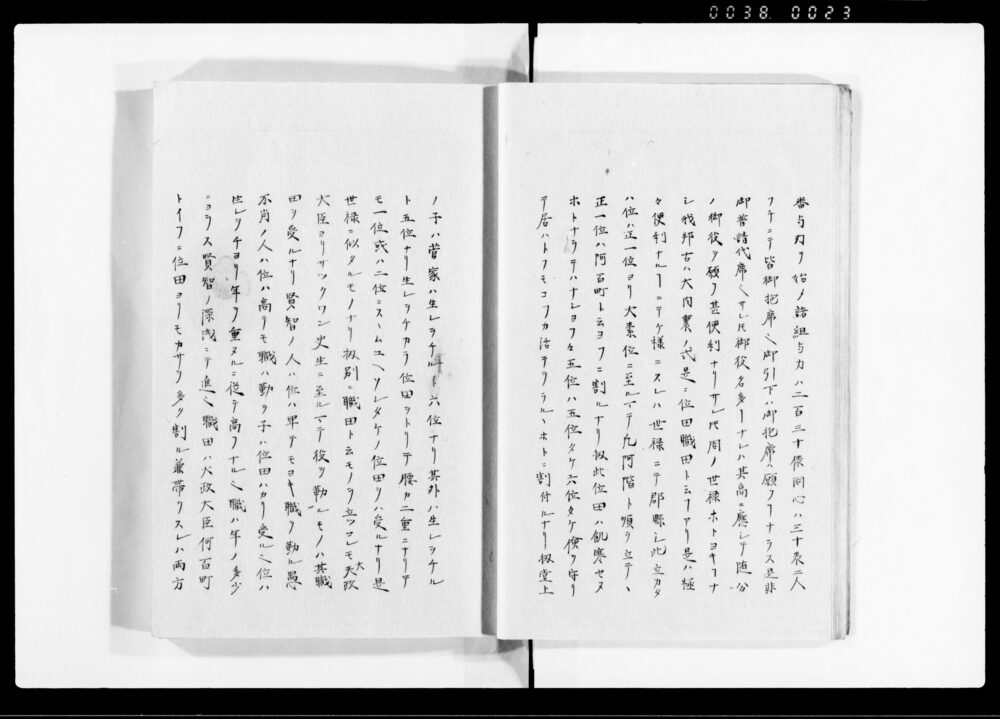 0038 0023
番与力ヲ始メ諸組与力ハ二百三十俵同心ハ三十表二人
フチニテ皆御抱席ヘ御引下ハ御抱席ハ願フヿナラス是非
御普請代席ヘサレ𪜈御役名多ーナレハ其高ニ應シテ随分
ノ御役ヲ願フ甚便利ナリサレ𪜈周ノ世禄ホトヨキハナ
シ我邦古ハ大内裏ノ弋是ニ位田職田ト云フアリ是ハ極
々便利ナルヿニテケ様ニスレハ世禄ニテ郡縣シ此立カタ
ハ位ハ正一位ヨリ大素位ニ至ルマテ九阿階ト順ヲ立テヽ
正一位ハ何百町ト云ヨフニ割ルナリ扨此位田ハ飢寒セヌ
ホトナラテハナシヨフ々五位ハ五位タケ六位タケ倹ヲ守リ
テ居ハトフモコフカ治ヲラルヽホトニ割付ルナリ扨堂上
ノ子ハ菅家ハ生レヲチルト六位ナリ其外ハ生レヲチル
ト五位ナリ生レヲチカラ位田ヲトリテ腰カ二重ニナリテ
モ一位或ハ二位ニスヽムユヘソレタケノ位田ヲハ受ルナリ是
世禄ニ似タルモノナリ扨別ニ職田ト云モノヲ立ツコレモ太政
大臣ヨリサツクワン史生ニ至ルマテ役ヲ勤ルモノハ其職
田ヲ受ルナリ賢智ノ人ハ位ハ卑テモヨキ職ヲ勤ル愚
不肖ノ人ハ位ハ高テモ職ハ勤ヲ子ハ位田ハカリ受ルヘ位ハ
生レヲチヨリ年ヲ重ヌルニ従テ高フナルヘ職ハ年ノ多少
ニヨラス賢智ノ深浅ニテ進ヘ職田ハ大政大臣何百町
トイフニ位田ヨリモカサヲ多ク割ル兼帯ヲスレハ両方